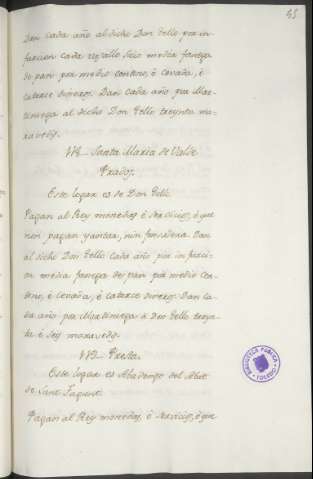 45
Dan cada año al dicho Don Tello por in-
furcion cada vasallo Seis media fanega
de pan por medio centeno, è cevada, è
catorce dineros. Dan cada año por Mar-
tiniega al dicho Don Tello treynta ma-
ravedis.
Santa Maria de Valde
Prados.
Este logar es de Don Tello.
Pagan al Rey monedas, è servicios, è que
non pagan yantar, nin fonsadera. Dan
al dicho Don Tello cada año por infurci-
on media fanega de pan por medio cen-
teno, è cevada, è catorce dineros. Dan ca-
da año por Martiniega à Don Tello treyn-
ta è seis maravedis.
Este logar es Abadengo del Abat
de Sant Fagunt.
Pagan al Rey monedas, è servicios, è que
BIBLIOTECA PUBLICA
TOLEDO